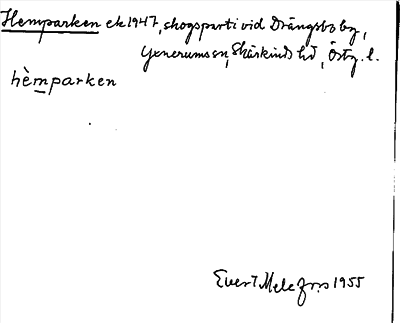 Hemparken ek 1947, skogsparti vid Drängsbo by,
Yxnerums sn, Skärkinds hd, Östg. l.
hèmparken
Evert Melefors 1955